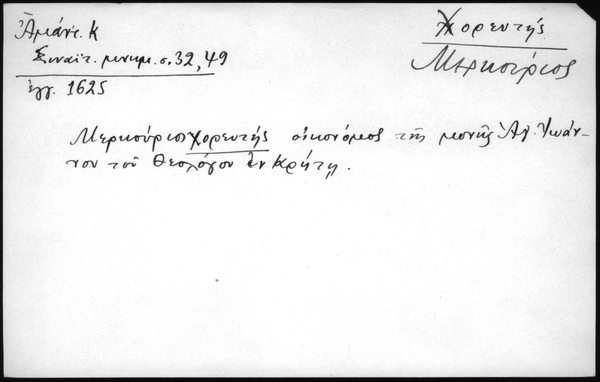 Ἀμάντ. Κ
Σιναϊτ. μνημ. σ. 32, 49
ἔγγ. 1625
Χορευτής
Μερκούριος
Μερκούριος Χορευτής οἰκονόμος τῆς μονῆς Ἁγ. Ἰωάν-
νου τοῦ Θεολόγου ἐν Κρήτῃ.